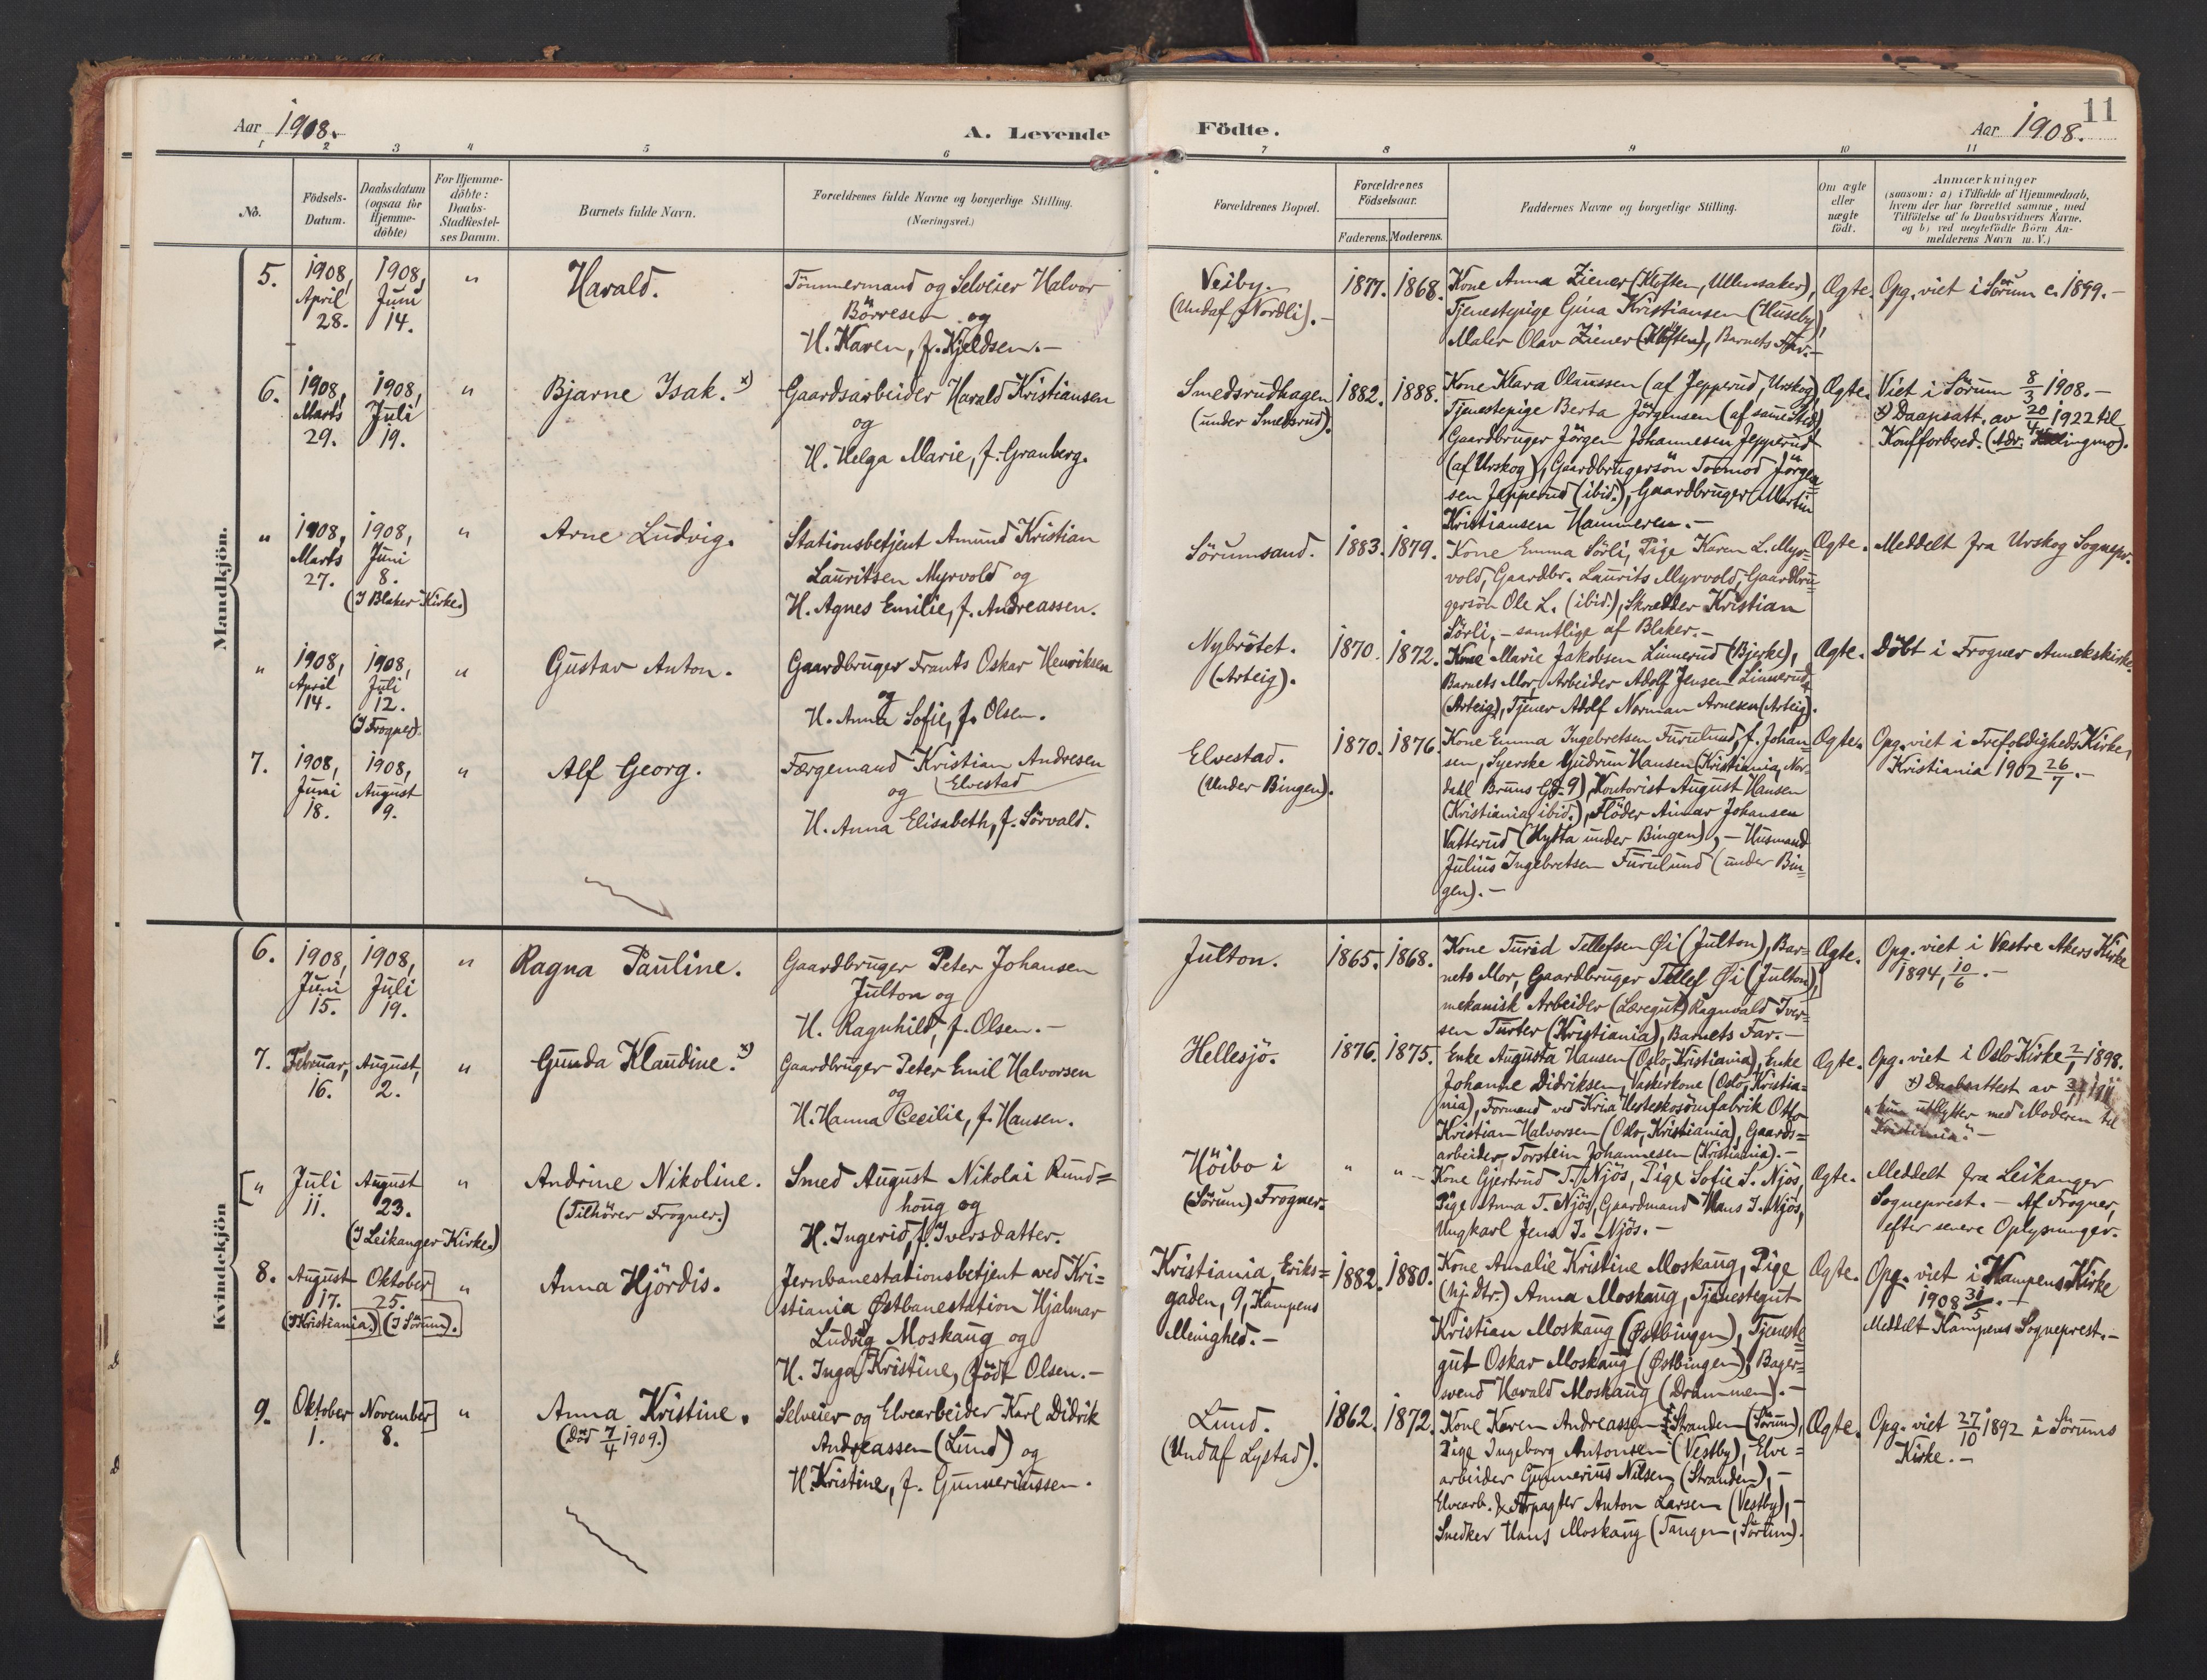 11
Aar 1908.
A. Levende Födte.
Aar 1908.
1 2 3 4 5 6 7 8 9 10 11
No.
Födsels-
Datum.
Daabsdatum
(ogsaa for
Hjemme-
döbte)
For Hjemme-
döbte:
Daabs-
Stadfæstel-
ses Datum.
Barnets fulde Navn.
Forældrenes fulde Navne og borgerlige Stilling.
(Næringsvei.)
Forældrenes Bopæl.
Forældrenes
Födselsaar.
Faderens. Moderens.
Faddernes Navne og borgerlige Stilling.
Om ægte
eller
uægte
födt.
Anmærkninger
(saasom: a) i Tilfælde af Hjemmedaab,
hvem der har forrettet samme, med
Tilföielse af to Daabsvidners Navne.
og b) ved uægtefödte Börn An-
melderens Navn m. V.)
Mandkjön.
5.
1908,
April
28.
1908,
Juni
14.
"
Harald.
Tömmermand og Selveier Halvor
Börresen og
H. Karen, f. Kjeldsen.-
Veiby.
(Undaf Nordli).-
1877. 1868.
Kone Anna Ziener (Kloften, Ullensaker),
Tjenestepige Gina Kristiansen (Huseby),
Maler Olav Ziener (Kloften), Barnets Far.-
Ægte.
Opg. viet i Sörum c. 1899.-
6.
1908,
Marts
29.
1908,
Juli
19.
"
Bjarne Isak. x)
Gaardsarbeider Harald Kristiansen
og
H. Helga Marie, f. Granberg.
Smedsrudhagen
(under Smedsrud).
1882. 1888.
Kone Klara Olaussen (af Jepperud, Urskog),
Tjenestepige Berta Jörgensen (af samested)
Gaardbruger Jörgen Johannesen Jepperud
(af Urskog), Gaardbrugersön Tormod Jörgen=
sen Jepperud (ibid.), Gaardbruger Martin
Kristiansen Hammeren.-
Ægte.
Viet i Sörum 8/3 1908.-
x) Daapsatt. av 20/4 1922 til
Konfforbered. (Adr.
"
1908,
Marts
27.
1908,
Juni
8.
(I Blaker Kirke.)
"
Arne Ludvig.
Stationsbetjent Amund Kristian
Lauritsen Myrvold og
H. Agnes Emilie, f. Andreassen.
Sörumsand.
1883. 1879.
Kone Emma Sörli, Pige Karen L. Myr=
vold, Gaardbr. Laurits Myrvold, Gaardbru=
gersön Ole L. (ibid.), Skrædder Kristian
Sörli,- samtlige af Blaker.-
Ægte.
Meddelt fra Urskog Sognepr.
"
1908,
April
14.
1908,
Juli
12.
(I Frogner).
"
Gustav Anton.
Gaardbruger Frants Oskar Henriksen
og
H. Anna Sofie, f. Olsen.
Nybrötet.
(Arteig).
1870. 1872.
Kone Marie Jakobsen Linnerud (Bjerke),
Barnets Mor, Arbeider Adolf Jensen Linnerud
(Arteig), Tjener Adolf Norman Arnesen (Arteig).
Ægte.
Döbt i Frogner Annekskirke.
7.
1908,
Juni
18.
1908,
August
9.
"
Alf Georg.
Færgemand Kristian Andresen
og Elvestad
H. Anna Elisabeth, f. Sörvald.
Elvestad.
(Under Bingen).
1870. 1876.
Kone Emma Ingebretsen Furulund, f. Johan
sen, Syerske Gudrun Hansen (Kristiania, Nor=
dahl Bruns Gd. 9), Kontorist August Hansen
(Kristiania, ibid.), Flöder Aimar Johansen
Vatterud (Hytta under Bingen),- Husmand
Julius Ingebretsen Furulund (under Bin=
gen).-
Ægte.
Opg. viet i Trefoldigheds Kirke,
Kristiania 1902 26/7.-
Kvindekjön
6.
1908,
Juni
15.
1908,
Juli
19.
"
Ragna Pauline.
Gaardbruger Peter Johansen
Julton og
H. Ragnhild, f. Olsen.-
Julton.
1865. 1868.
Kone Turid Tellefsen Øi (Julton), Bar=
nets Mor, Gaardbruger Tellef Øi (Julton),
mekanisk Arbeider (Læregut) Ragnvald Iver=
sen Turter (Kristiania), Barnets Far.-
Ægte.
Opg. viet i Vestre Akers Kirke
1894, 10/6.-
7.
Februar,
16.
August,
2.
"
Gunda Klaudine. x)
Gaardbruger Peter Emil Halvorsen
og
H. Hanna Cecilie, f. Hansen.
Hellesjö.
1876. 1875.
Enke Augusta Hansen (Oslo, Kristiania), Enke
Johanne Didriksen, Vaskerkone (Oslo, Kristia=
nia), Formand ved Kria Hesteskosömfabrik Otto
Kristian Halvorsen (Oslo, Kristiania), Gaards=
arbeider Torstein Johannesen (Kristiania).-
Ægte.
Opg. viet i Oslo Kirke 2/1 1898.
x) Daabsattest av 1911
utflytter med Moderen til
Kristiania.-
"
Juli
11.
August
23.
(I Leikanger Kirke.)
"
Andrine Nikoline.
(Tilhörer Frogner.)
Smed August Nikolai Rund=
houg og
H. Ingerid, f. Iversdatter.
Höibo i
(Sörum) Frogner.
" "
Kone Gjertrud T. Njös, Pige Sofie S. Njös,
Pige Anna T. Njös, Gaardmand Hans J. Njös,
Ungkarl Jens J. Njös.-
Ægte.
Meddelt fra Leikanger
Sogneprest.- Af Frogner,
efter senere Oplysninger.
8.
August
17.
(I Kristiania.)
Oktober
25.
(I Sörum).
"
Anna Hjördis.
Jernbanestationsbetjent ved Kri=
stiania Østbanestation Hjalmar
Ludvig Moskaug og
H. Inga Kristine, födt Olsen.-
Kristiania, Eriks=
gaden, 9, Kampens
Menighed.-
1882. 1880.
Kone Amalie Kristine Moskaug, Pige
(hj. dtr.) Anna Moskaug, Tjenestegut
Kristian Moskaug (Østbingen), Tjeneste
gut Oskar Moskaug (Østbingen), Bager=
svend Harald Moskaug (Drammen).-
Ægte.
Opg. viet i Kampens Kirke
1908 30/5.-
Meddelt Kampens Sogneprest.-
9.
Oktober
1.
November
8.
"
Anna Kristine.
(Död 7/4 1909.)
Selveier og Elvearbeider Karl Didrik
Andreassen (Lund) og
H. Kristine, f. Gunneriussen.
Lund.
(Undaf Lystad).
1862. 1872.
Kone Karen Andreassen Stranden (Sörum),
Pige Ingeborg Antonsen (Vestby), Elve=
arbeider Gunnerius Nilsen (Stranden),-
Elvearb. & Forpagter Anton Larsen (Vestby),-
Snedker Hans Moskaug (Tangen, Sörum).
Ægte.
Opg. viet 27/10 1892 i Sörums
Kirke.-